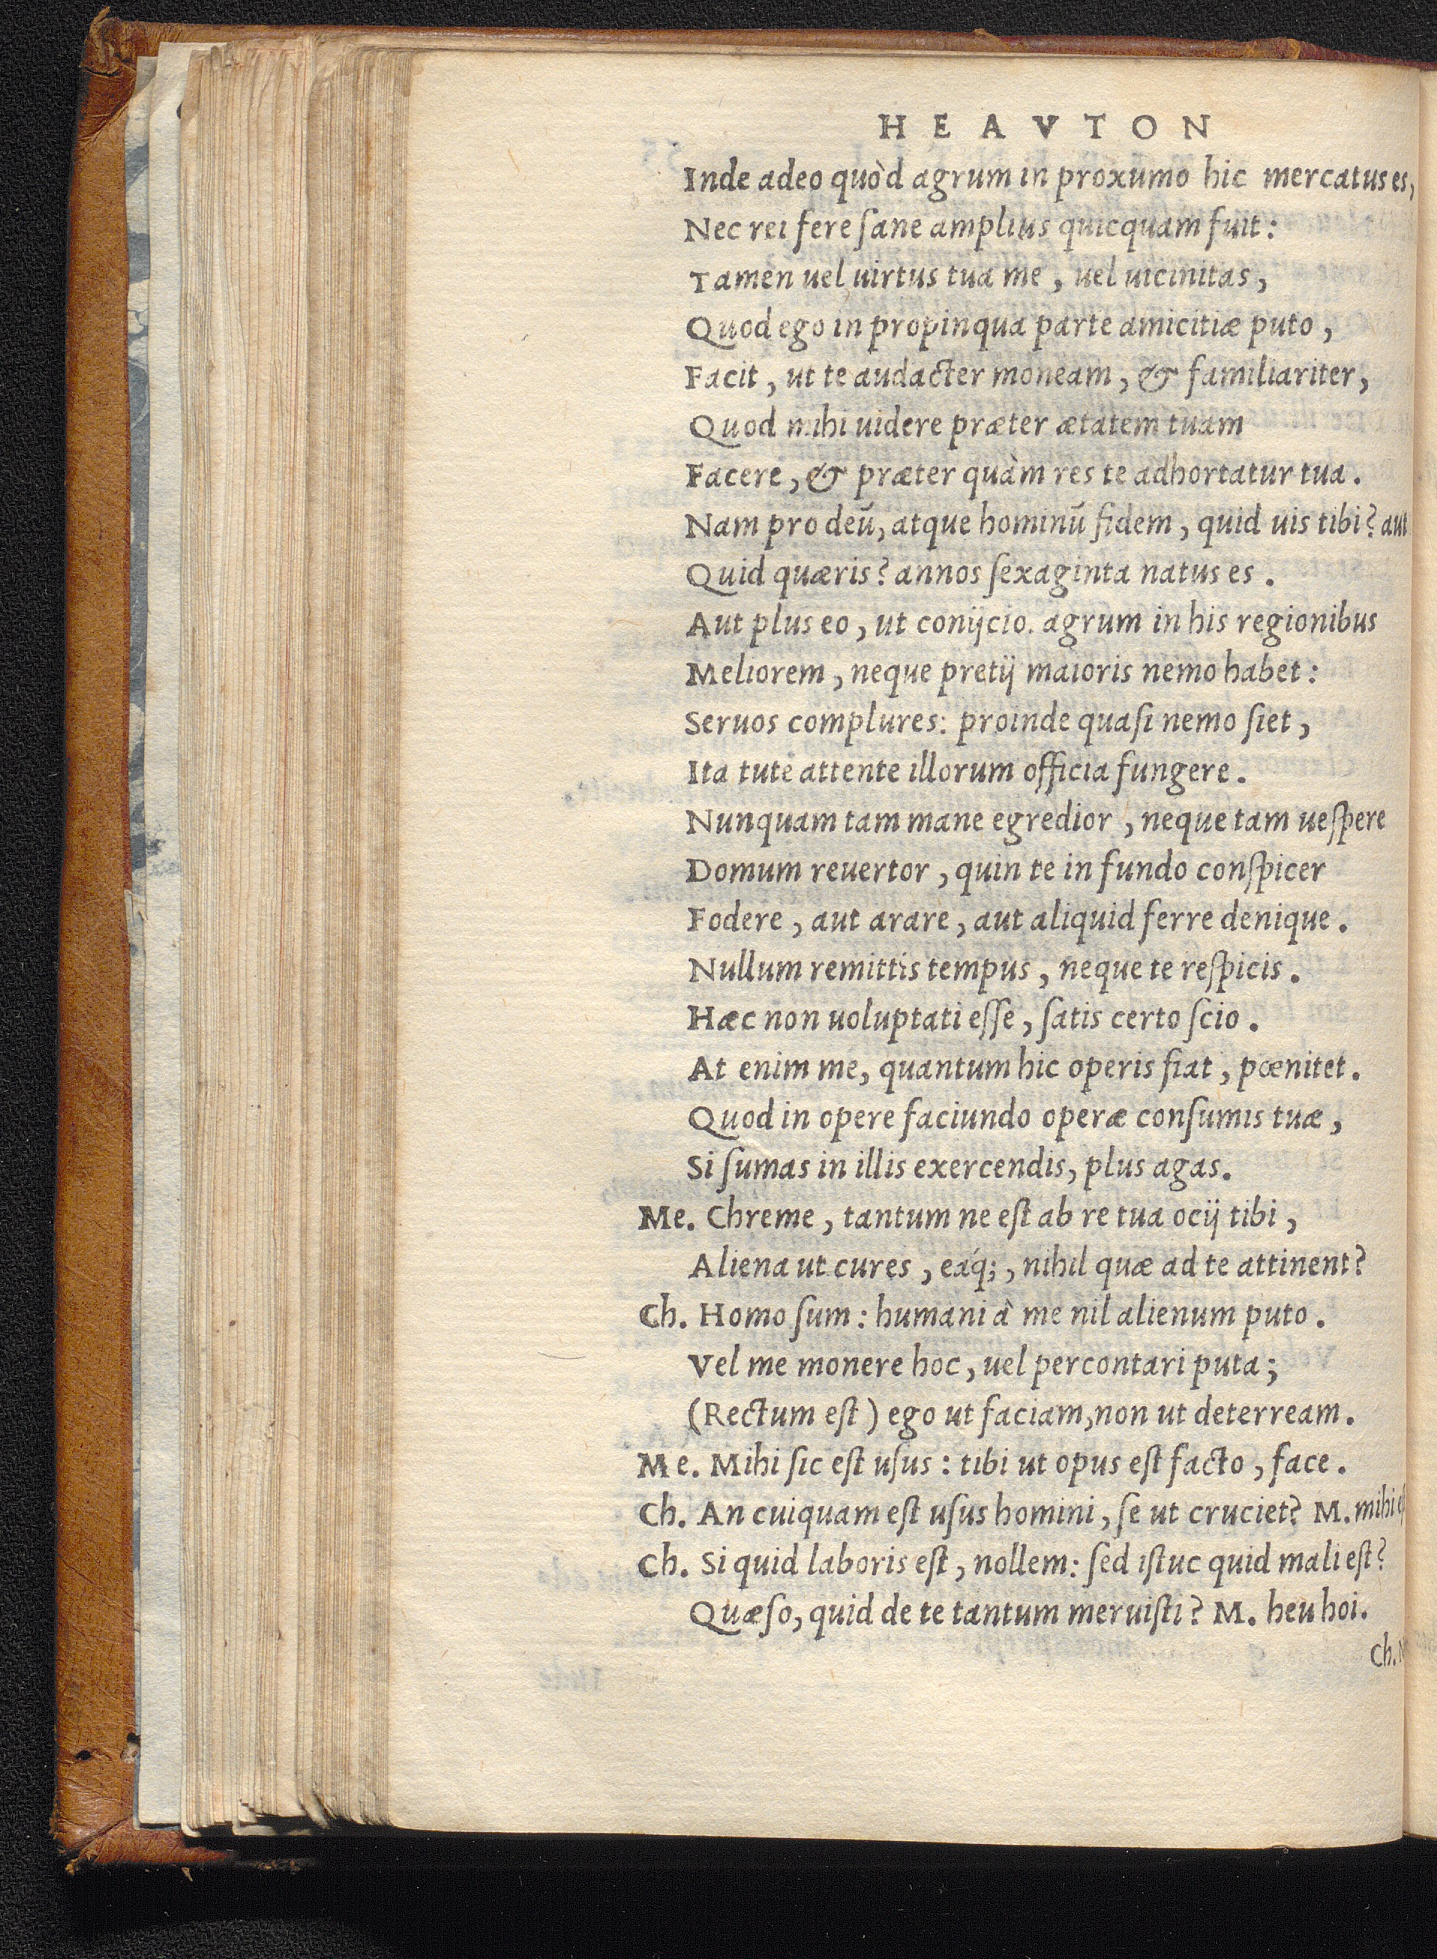 HEAVTON
Inde adeo quòd agrum in proxumo hic mercatus es,
Nec rei fere ſane amplius quicquam fuit:
Tamen uel uirtus tua me, uel uicinitas,
Quod ego in propinqua parte amicitiæ puto,
Facit, ut te audacter moneam, & familiariter,
Quod mihi uidere præter ætatem tuam
Facere, & præter quàm res te adhortatur tua.
Nam pro deū, atque hominū fidem, quid uis tibi? aut
Quid quæris? annos ſexaginta natus es.
Aut plus eo, ut conijcio. agrum in his regionibus
Meliorem, neque pretij maioris nemo habet:
Seruos complures: proinde quaſi nemo ſiet,
Ita tute attente illorum officia fungere.
Nunquam tam mane egredior, neque tam ueſpere
Domum reuertor, quin te in fundo conſpicer
Fodere, aut arare, aut aliquid ferre denique.
Nullum remittis tempus, neque te reſpicis.
Hæc non uoluptati eſſe, ſatis certo ſcio.
At enim me, quantum hic operis fiat, pœnitet.
Quod in opere faciundo operæ conſumis tuæ,
Si ſumas in illis exercendis, plus agas.
Me. Chreme, tantum ne eſt ab re tua ocij tibi,
Aliena ut cures, eáq;, nihil quæ ad te attinent?
Ch. Homo ſum: humani à me nil alienum puto.
Vel me monere hoc, uel percontari puta;
(Rectum eſt) ego ut faciam, non ut deterream.
Me. Mihi ſic eſt uſus: tibi ut opus eſt facto, face.
Ch. An cuiquam eſt uſus homini, ſe ut cruciet? M. mihi
Ch. Si quid laboris eſt, nollem: ſed iſtuc quid mali eſt?
Quæſo, quid de te tantum meruiſti? M. heu hoi.
Ch.